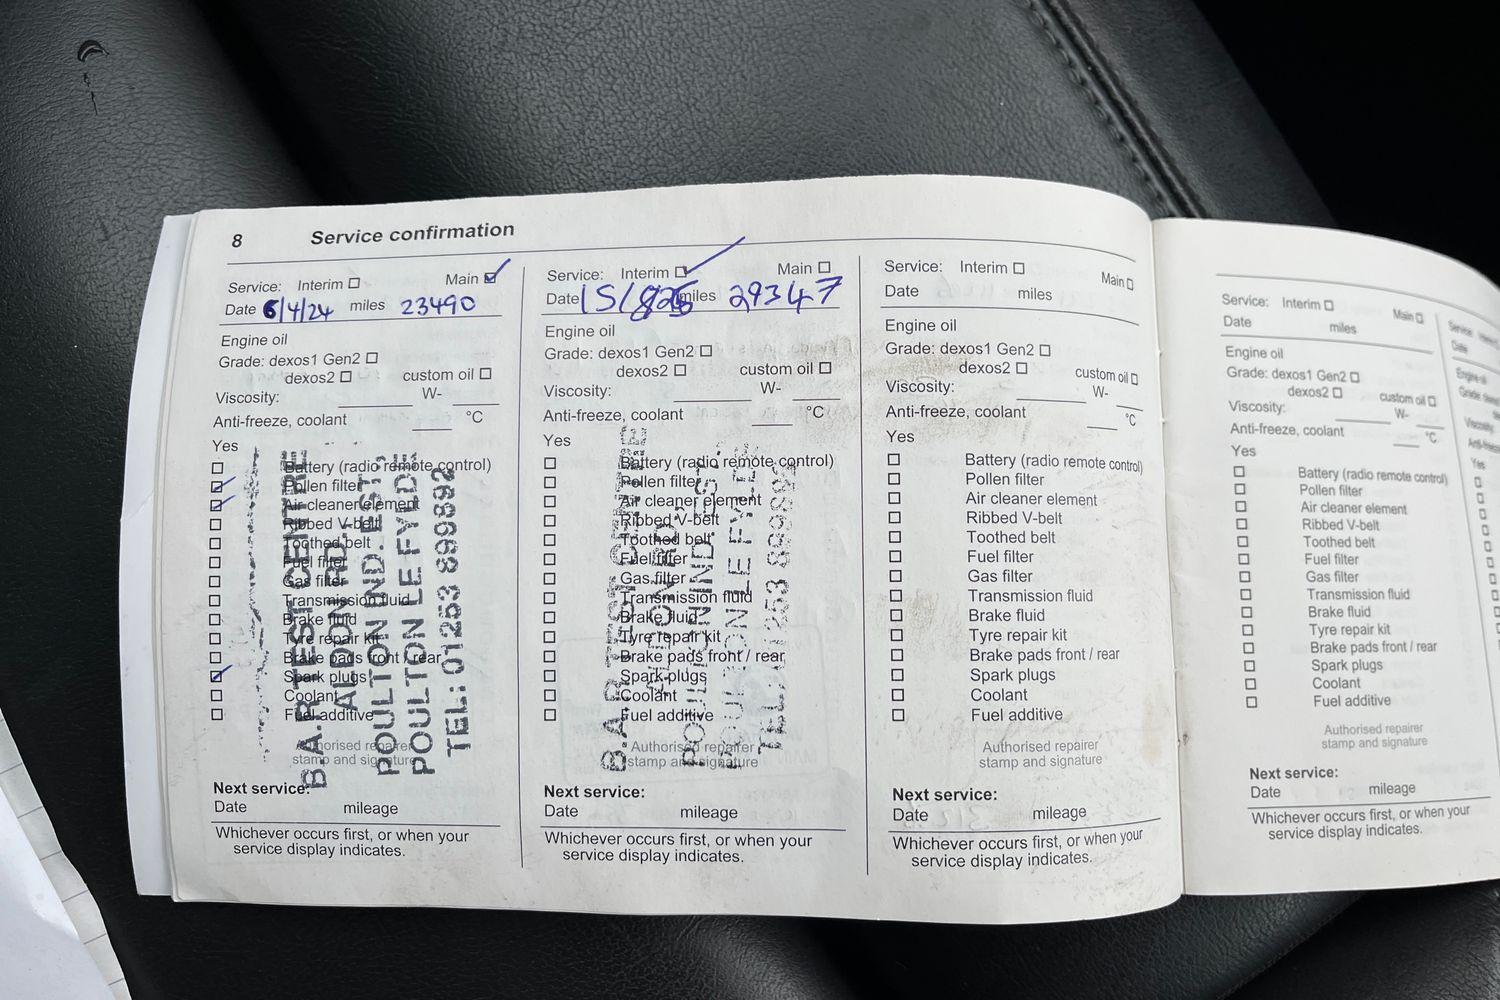 8 Service confirmation
Service: Interim Main
Date 6/4/24 miles 23490
Engine oil
Grade: dexos1 Gen2
dexos2 custom oil
Viscosity: W-
Anti-freeze, coolant °C
Yes
Battery (radio remote control)
Pollen filter
Air cleaner element
Ribbed V-belt
Toothed belt
Fuel filter
Gas filter
Transmission fluid
Brake fluid
Tyre repair kit
Brake pads front / rear
Spark plugs
Coolant
Fuel additive
Authorised repairer
stamp and signature
B.A.R TEST CENTRE
ALDON RD.
POULTON IND. EST,
POULTON LE FYLDE
TEL: 01253 899892
Next service:
Date mileage
Whichever occurs first, or when your
service display indicates.
Service: Interim Main
Date miles 29347
Engine oil
Grade: dexos1 Gen2
dexos2 custom oil
Viscosity: W-
Anti-freeze, coolant °C
Yes
Battery (radio remote control)
Pollen filter
Air cleaner element
Ribbed V-belt
Toothed belt
Fuel filter
Gas filter
Transmission fluid
Brake fluid
Tyre repair kit
Brake pads front / rear
Spark plugs
Coolant
Fuel additive
Authorised repairer
stamp and signature
B.A.R TEST CENTRE
ALDON RD.
POULTON IND. EST,
POULTON LE FYLDE
TEL: 01253 899892
Next service:
Date mileage
Whichever occurs first, or when your
service display indicates.
Service: Interim Main
Date miles
Engine oil
Grade: dexos1 Gen2
dexos2 custom oil
Viscosity: W-
Anti-freeze, coolant °C
Yes
Battery (radio remote control)
Pollen filter
Air cleaner element
Ribbed V-belt
Toothed belt
Fuel filter
Gas filter
Transmission fluid
Brake fluid
Tyre repair kit
Brake pads front / rear
Spark plugs
Coolant
Fuel additive
Authorised repairer
stamp and signature
Next service:
Date mileage
Whichever occurs first, or when your
service display indicates.
Service: Interim Main
Date miles
Engine oil
Grade: dexos1 Gen2
dexos2 custom oil
Viscosity: W-
Anti-freeze, coolant °C
Yes
Battery (radio remote control)
Pollen filter
Air cleaner element
Ribbed V-belt
Toothed belt
Fuel filter
Gas filter
Transmission fluid
Brake fluid
Tyre repair kit
Brake pads front / rear
Spark plugs
Coolant
Fuel additive
Authorised repairer
stamp and signature
Next service:
Date mileage
Whichever occurs first, or when your
service display indicates.
Service
Date
Engine oil
Yes